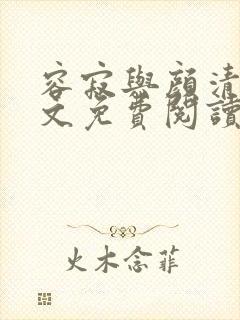 容寂與顏清
文免費閱讀
火木念菲